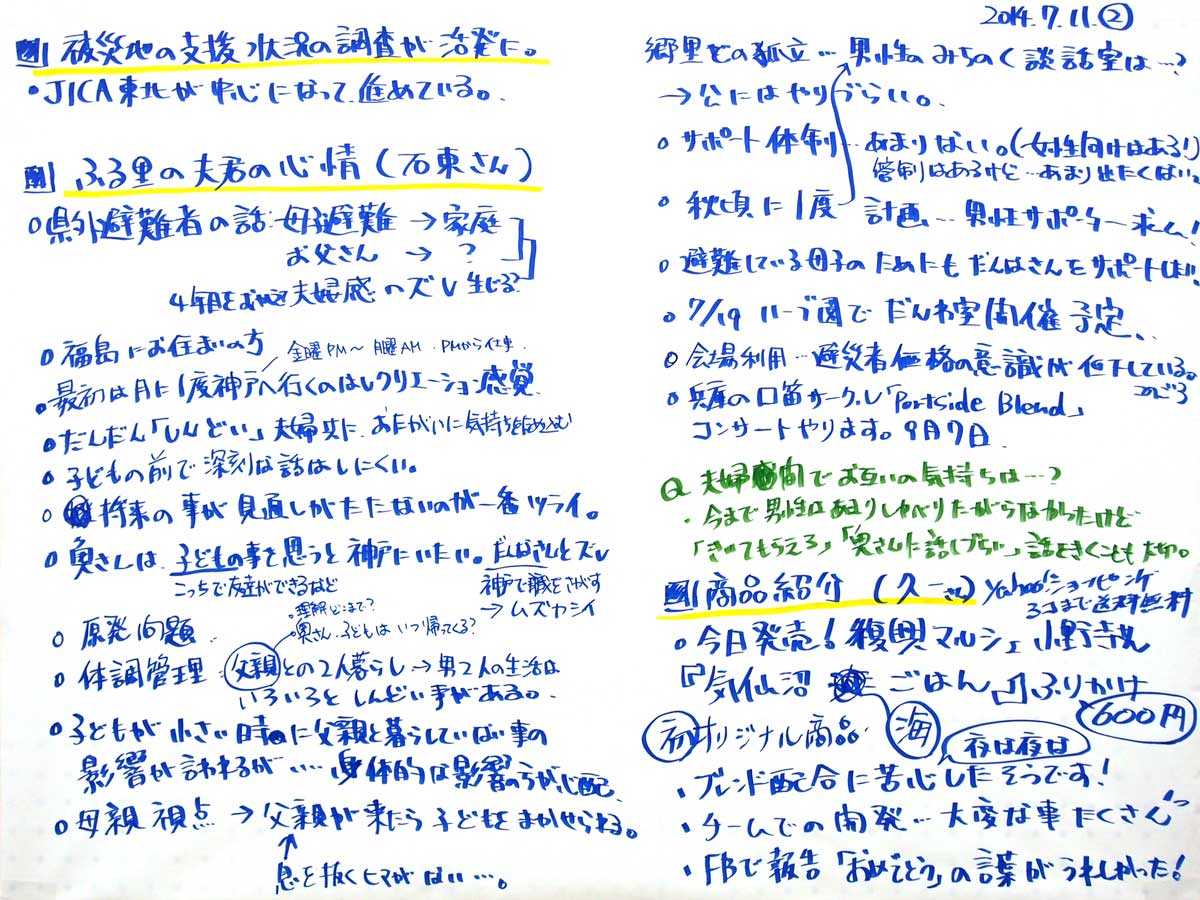 2014.7.11.②
被災地の支援状況の調査が活発に。
・JICA東北が中心になって進めている。
ふる里の夫君の心情(石東さん)
○県外避難者の話 母子避難 → 家庭
お父さん → ?
4年目をむかえ夫婦感のズレ生じる?
○福島にお住まいの方
金曜PM〜月曜AM.PMから仕事.
・最初は月に1度神戸へ行くのはレクリエーション感覚
・だんだん「しんどい」夫婦共に、お互いに気持ちを溜め込む
○子どもの前で深刻な話はしにくい。
○将来の事が見通しがたたないのが一番ツライ。
○奥さんは、子どもの事を思うと神戸にいたい。だんなさんとズレ
こっちで友達ができるなど
神戸で職をさがす
→ムズカシイ
○原発問題
・理解どこまで?
・奥さん・子どもはいつ帰ってくる?
○体調管理 父親との2人暮らし→男2人の生活は
いろいろとしんどい事がある。
○子どもが小さい時に父親と暮らしていない事の
影響が言われるが…身体的な影響の方が心配、
○母親視点 → 父親が来たら子どもをまかせられる。
↑
息を抜くヒマがない…。
郷里での孤立…男性のみちのく談話室は…?
→公にはやりづらい。
○サポート体制…あまりない。(女性向けはあるり)
管制はあるけど…あまり出たくない。
○秋頃に1度 計画…男性サポーター求ム!
○避難している母子のためにもだんなさんをサポートしよう!!
○7/19 ハーブ園でだんわ室開催予定、
○会場利用…避災者価格の意識が低下している。
このごろ
○兵庫の口笛サークル「Portside Blend」
コンサートやります。9月7日
Q 夫婦間でお互いの気持ちは…?
・今まで男性はあまりしゃべりたがらなかったけど
「きいてもらえる」「奥さんに話しづらい」話をきくことも大切。
商品紹介 (久一さん) Yahoo!ショッピング
3コまで送料無料
○今日発売!復興マルシェ 小野寺さん
『気仙沼 海 ごはん』ふりかけ
600円
初オリジナル商品
夜は夜は
・ブレンド配合に苦心したそうです!
・チームでの開発…大変な事たくさん
・FBで報告「おめでとう」の言葉がうれしかった!